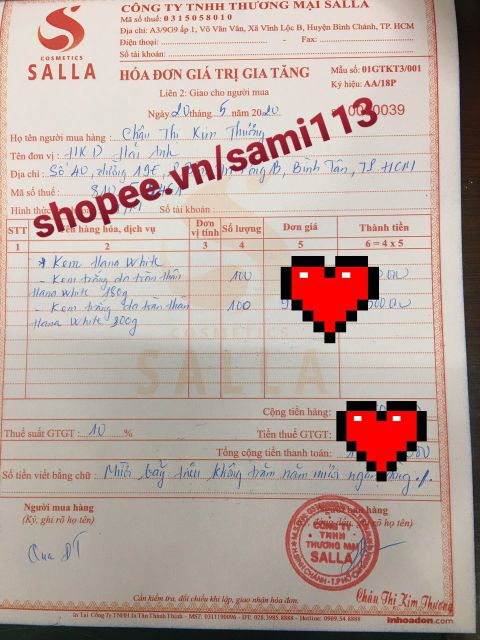 CÔNG TY TNHH THƯƠNG MẠI SALLA
Mã số thuế: 0315058010
Địa chỉ: A3/9G9 ấp 1, Võ Văn Vân, Xã Vĩnh Lộc B, Huyện Bình Chánh, TP. HCM
Điện thoại: - Fax:
Số tài khoản:
S
COSMETICS
SALLA
HÓA ĐƠN GIÁ TRỊ GIA TĂNG
Mẫu số: 01GTKT3/001
Liên 2: Giao cho người mua
Ký hiệu: AA/18P
Ngày 20 tháng 5 năm 2020
0039
Họ tên người mua hàng: Châu Thị Kim Thương
Tên đơn vị: HKD Hải Anh
Địa chỉ: Số 40, đường 19E, B, Bình Tân, TP. HCM
Mã số thuế:
Hình thức Số tài khoản:
shopee.vn/sami113
STT Tên hàng hóa, dịch vụ Đơn vị tính Số lượng Đơn giá Thành tiền
1 2 3 4 5 6 = 4 x 5
* Kem Hana White
- Kem trắng da toàn thân 100
Hana White 180g
- Kem trắng da toàn thân 100
Hana White 200g
COSMETICS
SALLA
Cộng tiền hàng:
Thuế suất GTGT: 10 % Tiền thuế GTGT:
Tổng cộng tiền thanh toán:
Số tiền viết bằng chữ: Mười bảy triệu không trăm năm mươi
Người mua hàng
(Ký, ghi rõ họ tên)
bán hàng
ghi rõ họ tên)
Qua ĐT
CÔNG TY
TNHH
THƯƠNG MẠI
SALLA
Châu Thị Kim Thương
Cần kiểm tra, đối chiếu khi lập, giao nhận hóa đơn.
inhoadon.com